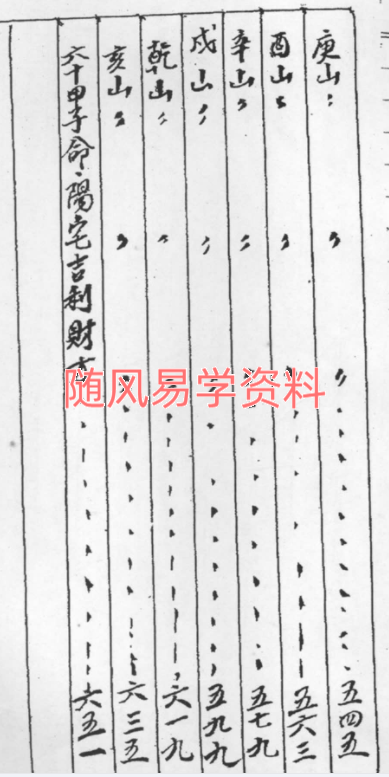 庚山〃〃〃五四五
酉山〃〃〃五六三
辛山〃〃〃五七九
戌山〃〃〃五九九
乾山〃〃〃六一九
亥山〃〃〃六三五
六十甲子命、陽宅吉利財六五一
随风易学资料